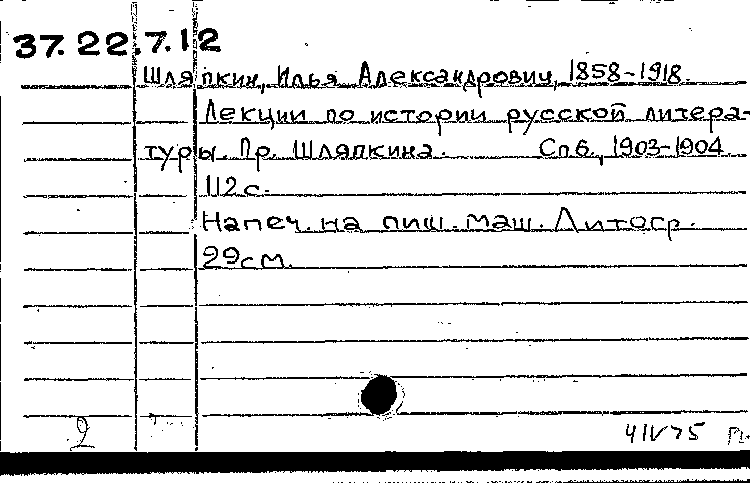 37.22.7.12
Шляпкин, Илья Александрович, 1858-1918.
Лекции по истории русской литера-
туры. Пр. Шляпкина. Спб., 1903-1904
112с.
Напеч. на пиш. маш. Литогр.
29см.
2
4IV75